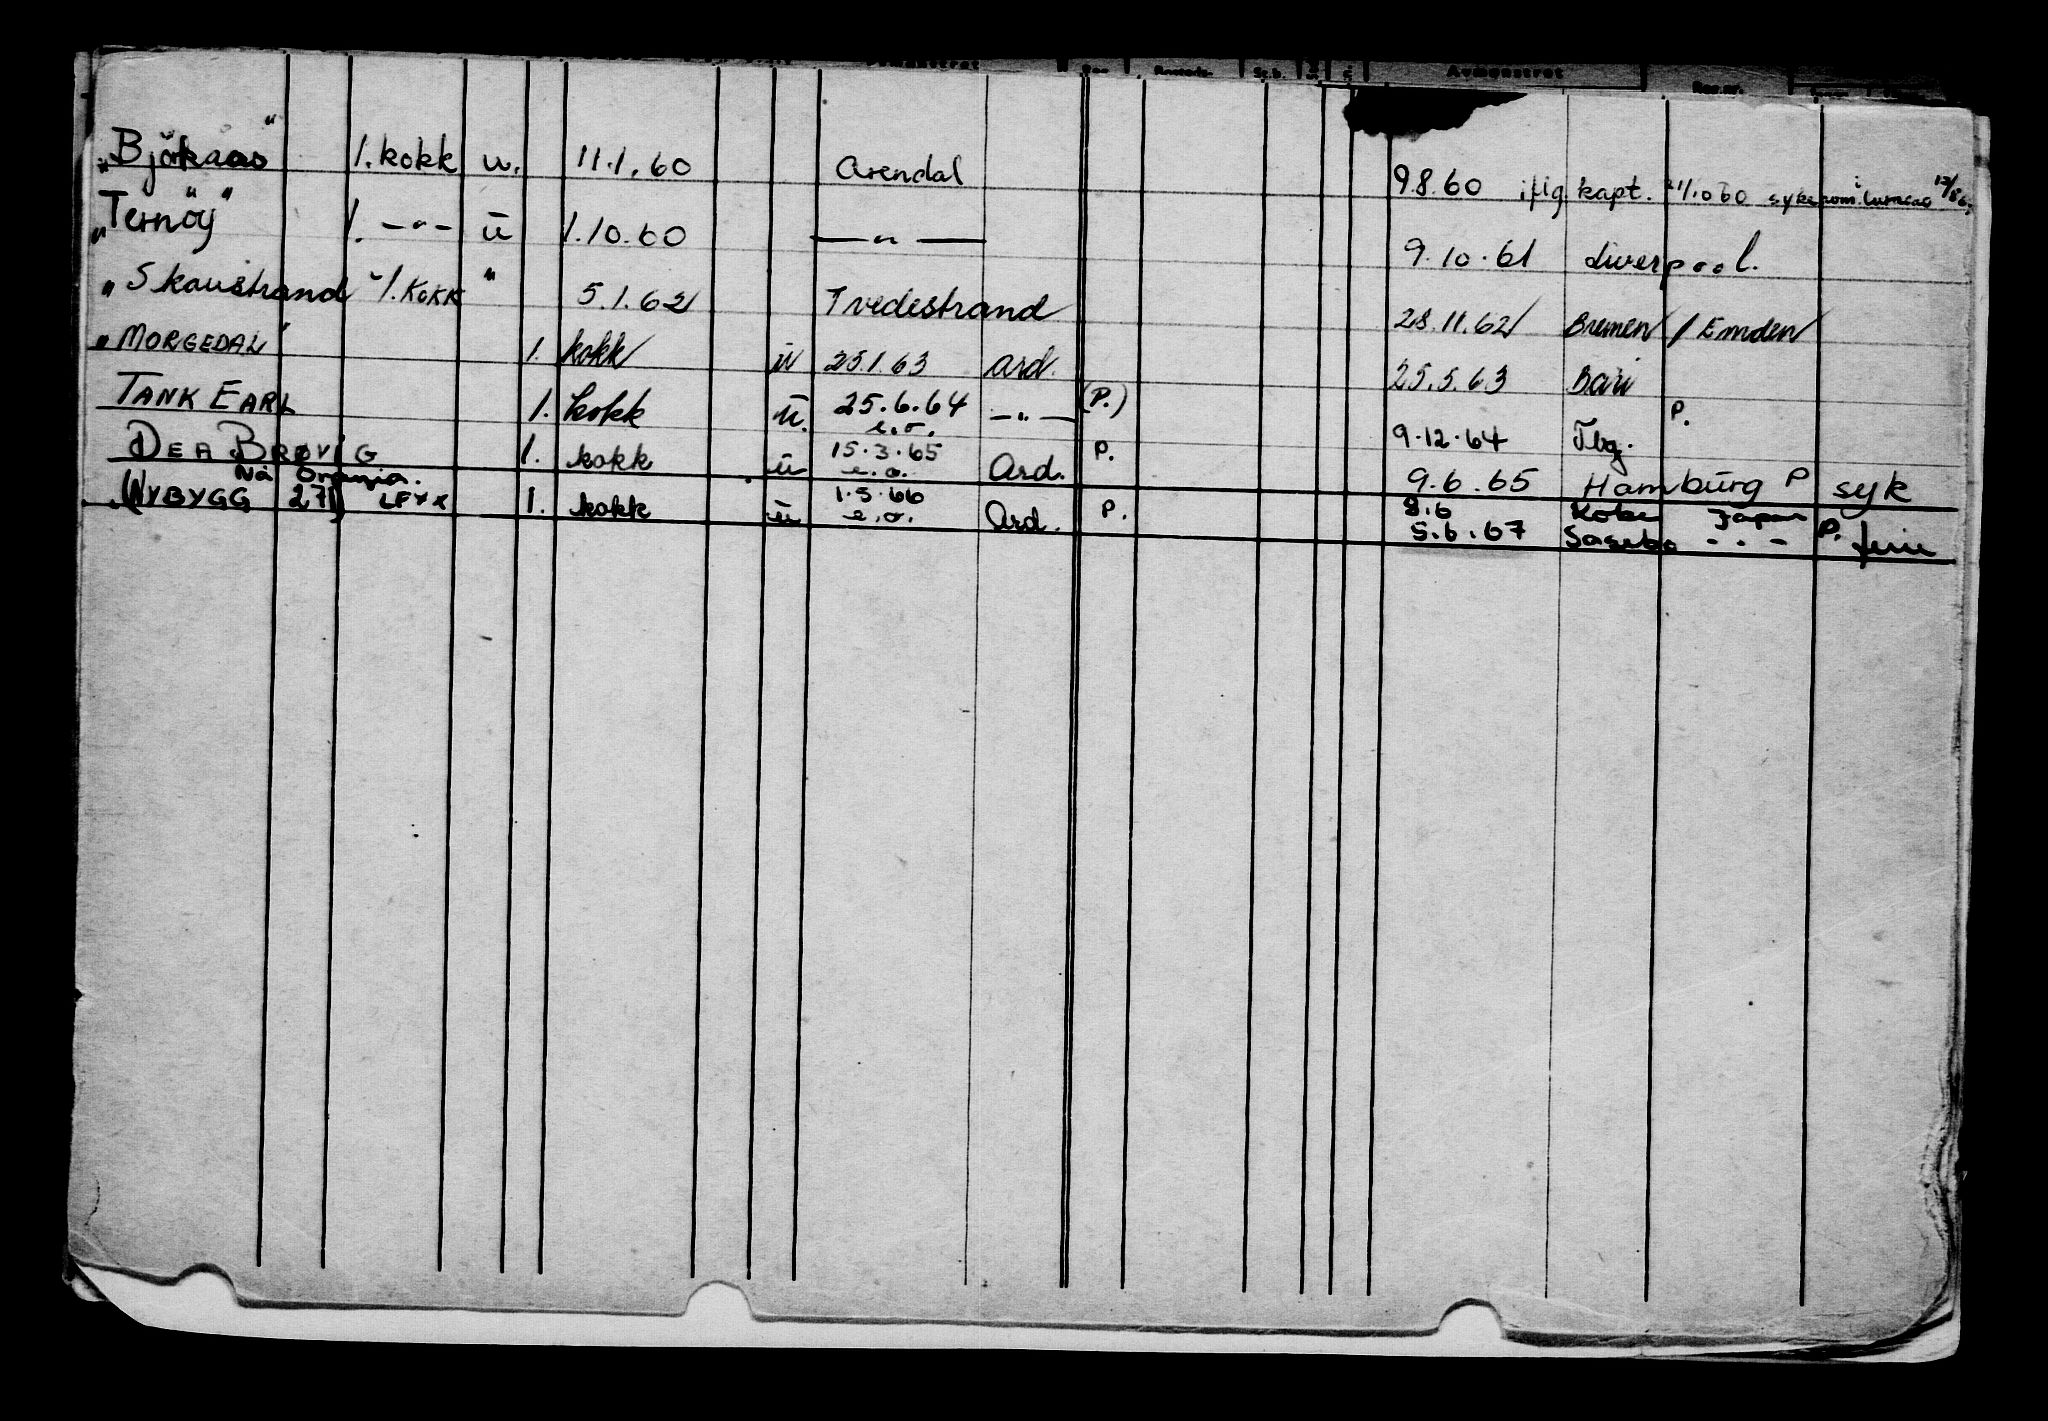 Avmønstret
"Bjøkaas" 1. kokk u. 11.1.60 Arendal 9.8.60 iflg kapt. 21/1060 sykerom i Curacao
"Ternøy" 1. —"— ū 1.10.60 —"— 9.10.61 Liverpool.
"Skaustrand" 1. KOKK " 5.1.62 Tvedestrand 28.11.62 Bremen / Emden
"MORGEDAL" 1. kokk ū 25.1.63 Ard. 25.5.63 Bari
TANK EARL 1. kokk ū. 25.6.64 e.o. —"— (P.) 9.12.64 Tbg. P.
DEA BRØVIG 1. kokk ū 15.3.65 e.o. Ard. P. 9.6.65 Hamburg P syk
Nå Oranjia. 8.6 Kobe Japan
(NYBYGG 271) LFYX 1. kokk ū 1.5.66 e.o. Ard. P. 5.6.67 Sasebo - " - P. ferie